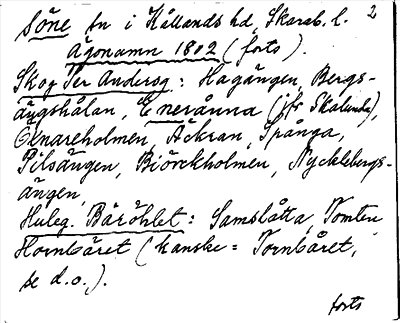 Söne sn i Kållands hd, Skarab. l. 2
Ägonamn 1802 (forts).
Skog Per Anders: Hagängen, Bergs-
ängshålan, Eneränna (jfr Skalunda),
Genareholmen, Åckran, Spånga,
Pilsängen, Biörckholmen, Nycklebergs-
ängen
Huleg. Bäröhlet: Samslåtta, Tomten
Hornbäret (kanske = Tornbåret,
se d.o.).
forts